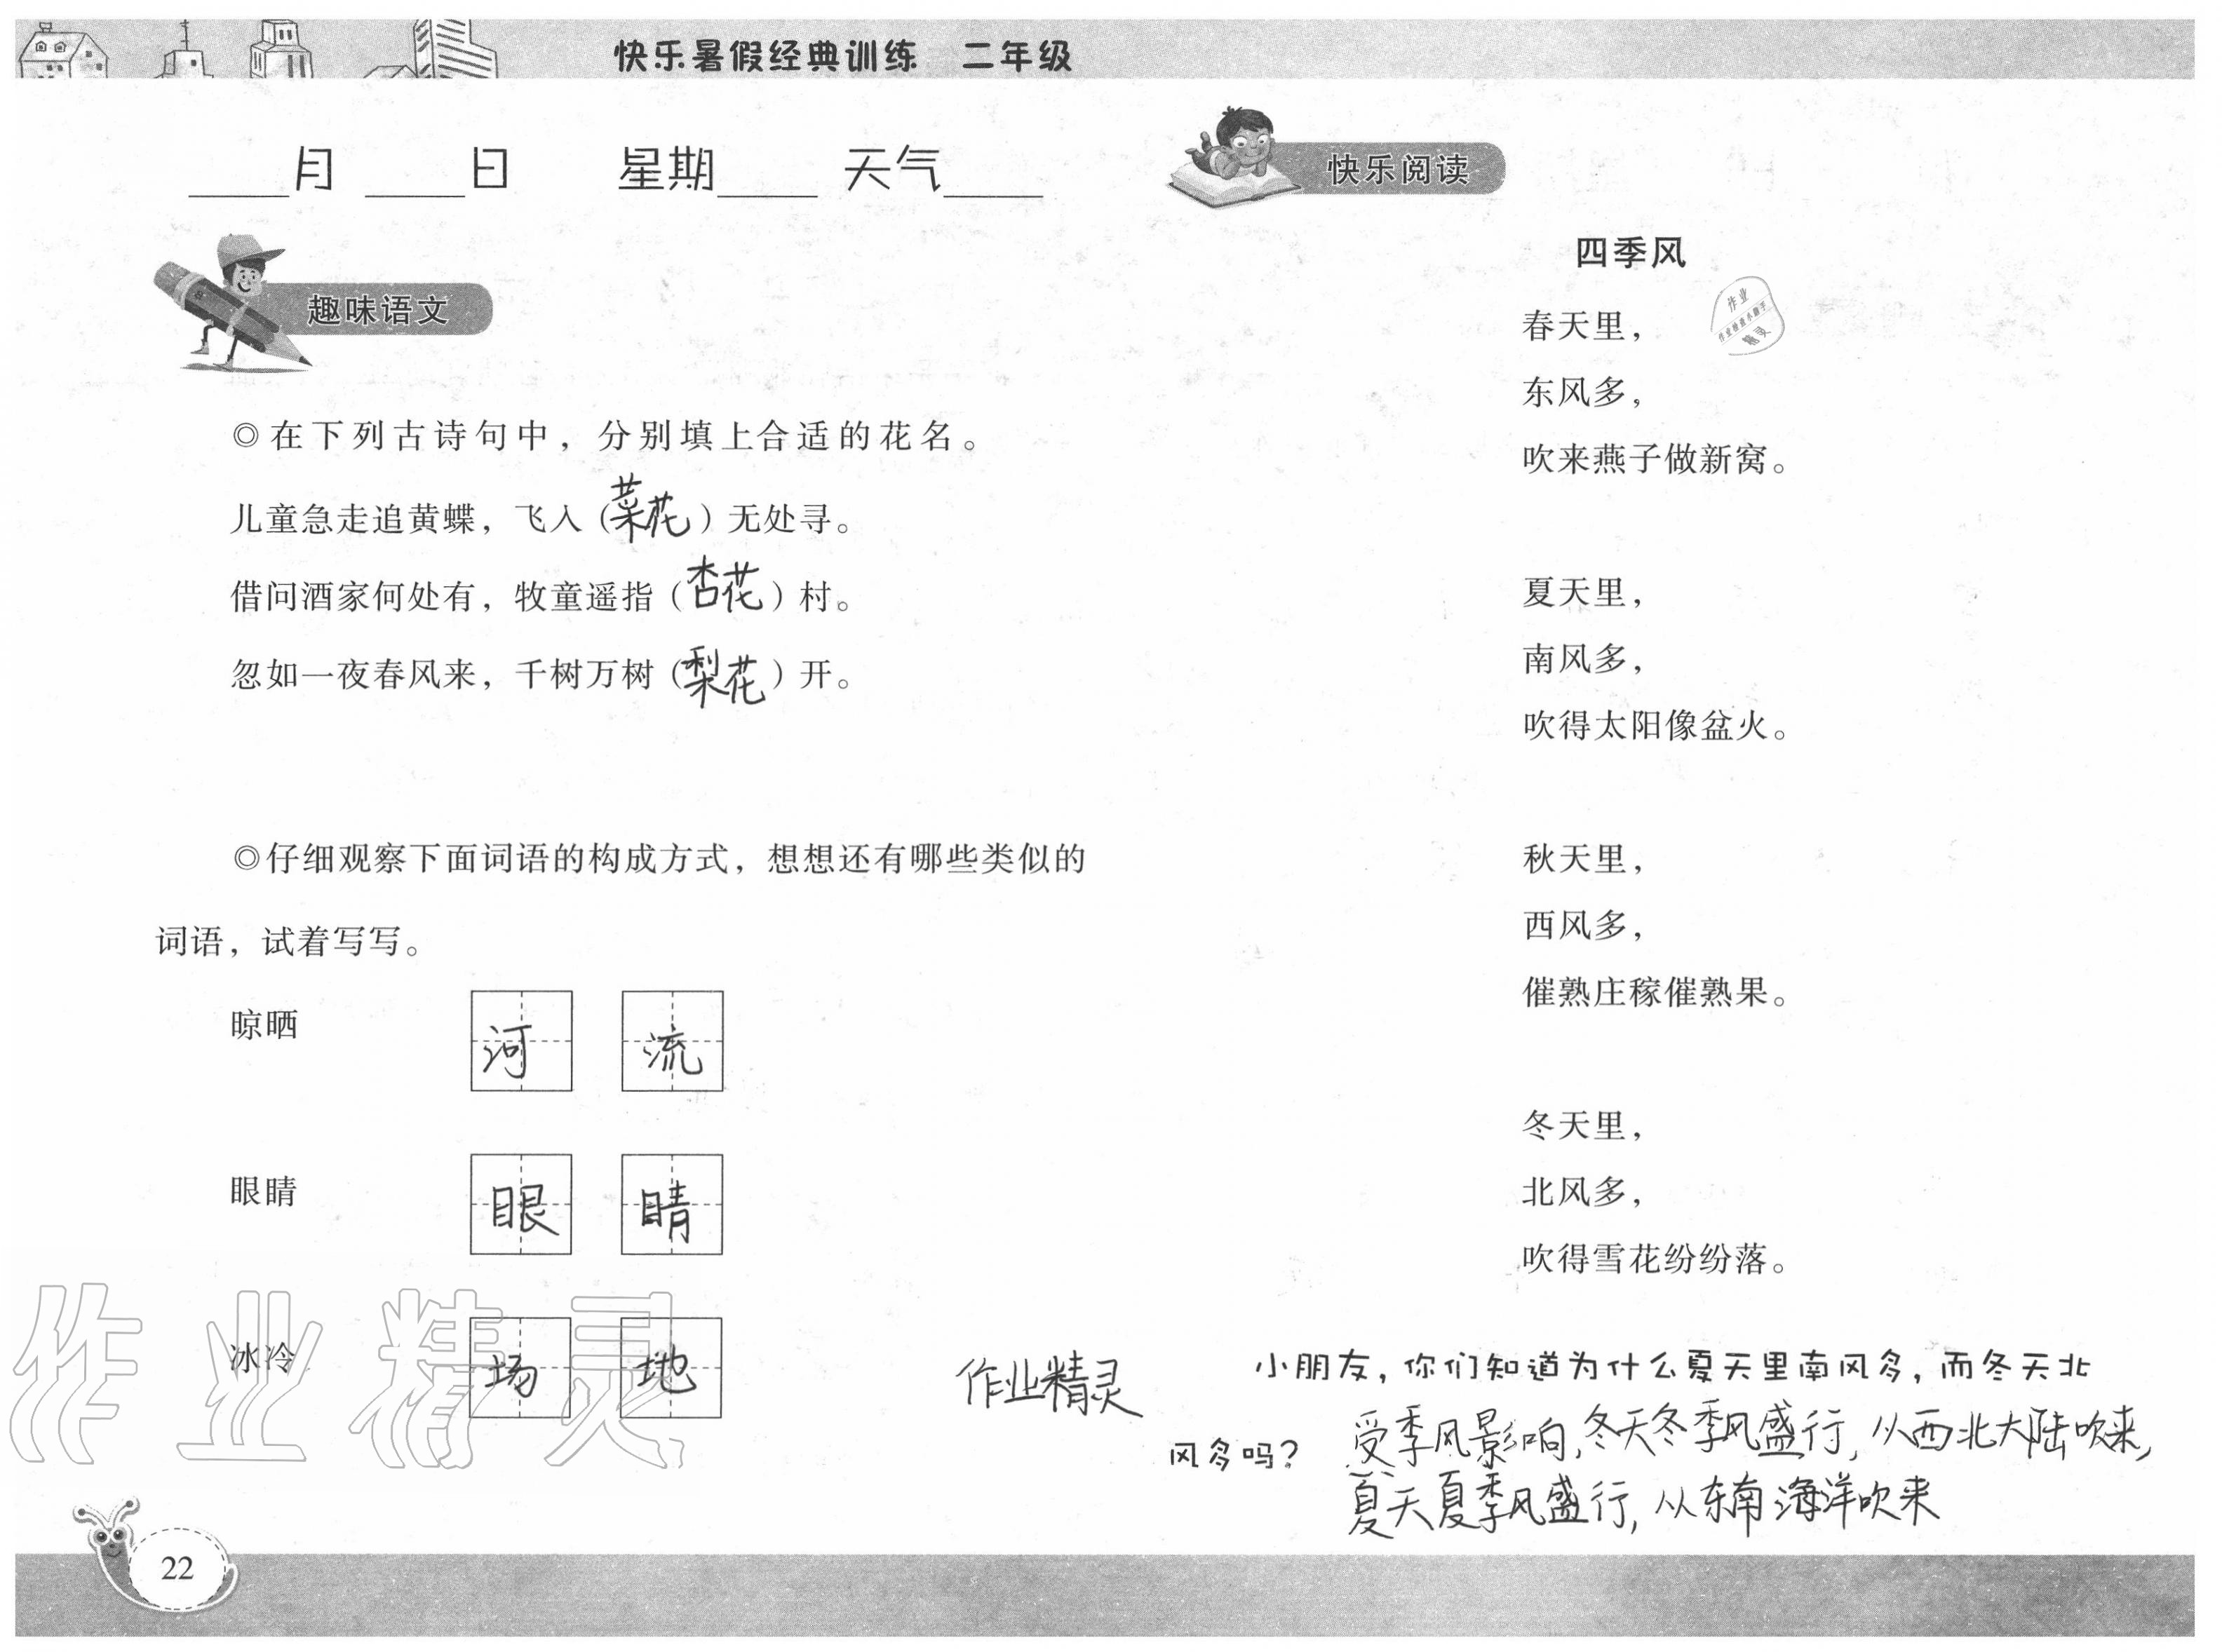 快乐暑假经典训练 二年级
____月 ____日 星期____ 天气____
趣味语文
◎在下列古诗句中，分别填上合适的花名。
儿童急走追黄蝶，飞入（菜花）无处寻。
借问酒家何处有，牧童遥指（杏花）村。
忽如一夜春风来，千树万树（梨花）开。
◎仔细观察下面词语的构成方式，想想还有哪些类似的
词语，试着写写。
晾晒 河 流
眼睛 眼 睛
冰冷 场 地
作业精灵
作业精灵
22
快乐阅读
四季风
作业
春天里，
东风多，
吹来燕子做新窝。
夏天里，
南风多，
吹得太阳像盆火。
秋天里，
西风多，
催熟庄稼催熟果。
冬天里，
北风多，
吹得雪花纷纷落。
小朋友，你们知道为什么夏天里南风多，而冬天北
风多吗？ 受季风影响，冬天冬季风盛行，从西北大陆吹来，
夏天夏季风盛行，从东南海洋吹来